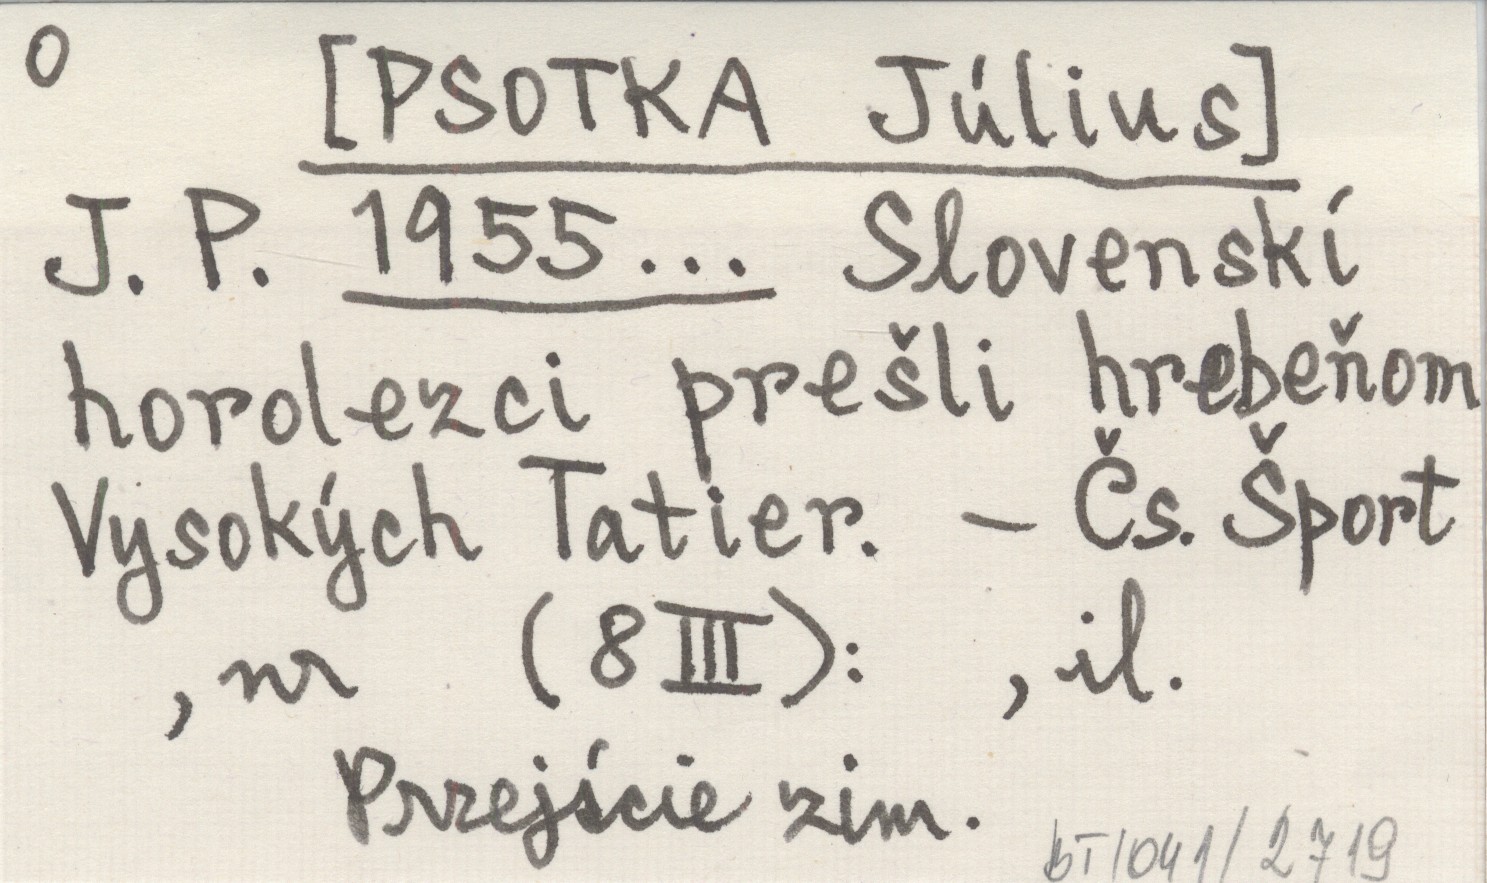 O
[PSOTKA Július]
J. P. 1955... Slovenskí
horolezci prešli hrebeňom
Vysokých Tatier. – Čs. Šport
, nr (8 III): , il.
Przejście zim.
bT/041/2719